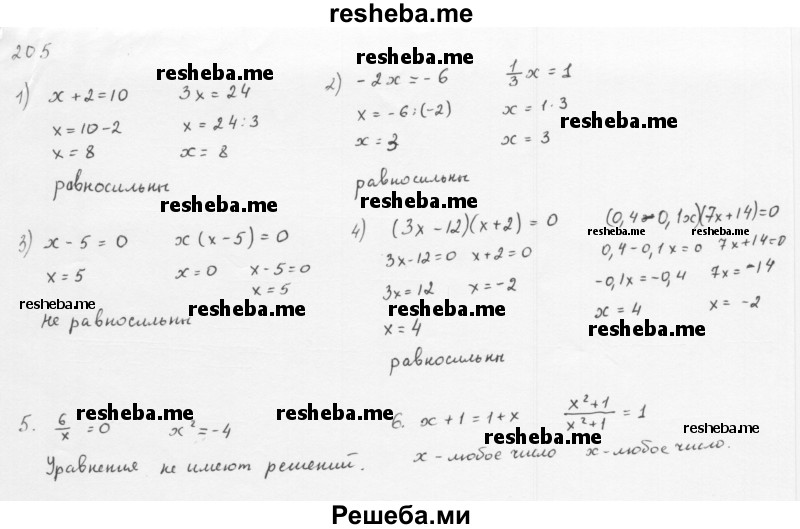 resheba.me
205
resheba.me resheba.me
1) x + 2 = 10 3x = 24 2) - 2x = - 6 1/3 x = 1
x = 10 - 2 x = 24 : 3 x = - 6 : (-2) x = 1 · 3
resheba.me
x = 8 x = 8 x = 3 x = 3
равносильны равносильны
resheba.me resheba.me
3) x - 5 = 0 x (x - 5) = 0 4) (3x - 12)(x + 2) = 0 (0,4 - 0,1x)(7x + 14) = 0
resheba.me resheba.me
x = 5 x = 0 x - 5 = 0 3x - 12 = 0 x + 2 = 0 0,4 - 0,1x = 0 7x + 14 = 0
x = 5 3x = 12 x = -2 -0,1x = -0,4 7x = -14
resheba.me resheba.me resheba.me
Не равносильны x = 4 x = 4 x = -2
resheba.me
равносильны
resheba.me resheba.me
5. 6/x = 0 x² = -4 6. x + 1 = 1 + x x²+1/x²+1 = 1
resheba.me resheba.me
Уравнения не имеют решений. x - любое число x - любое число.
Решеба.ми